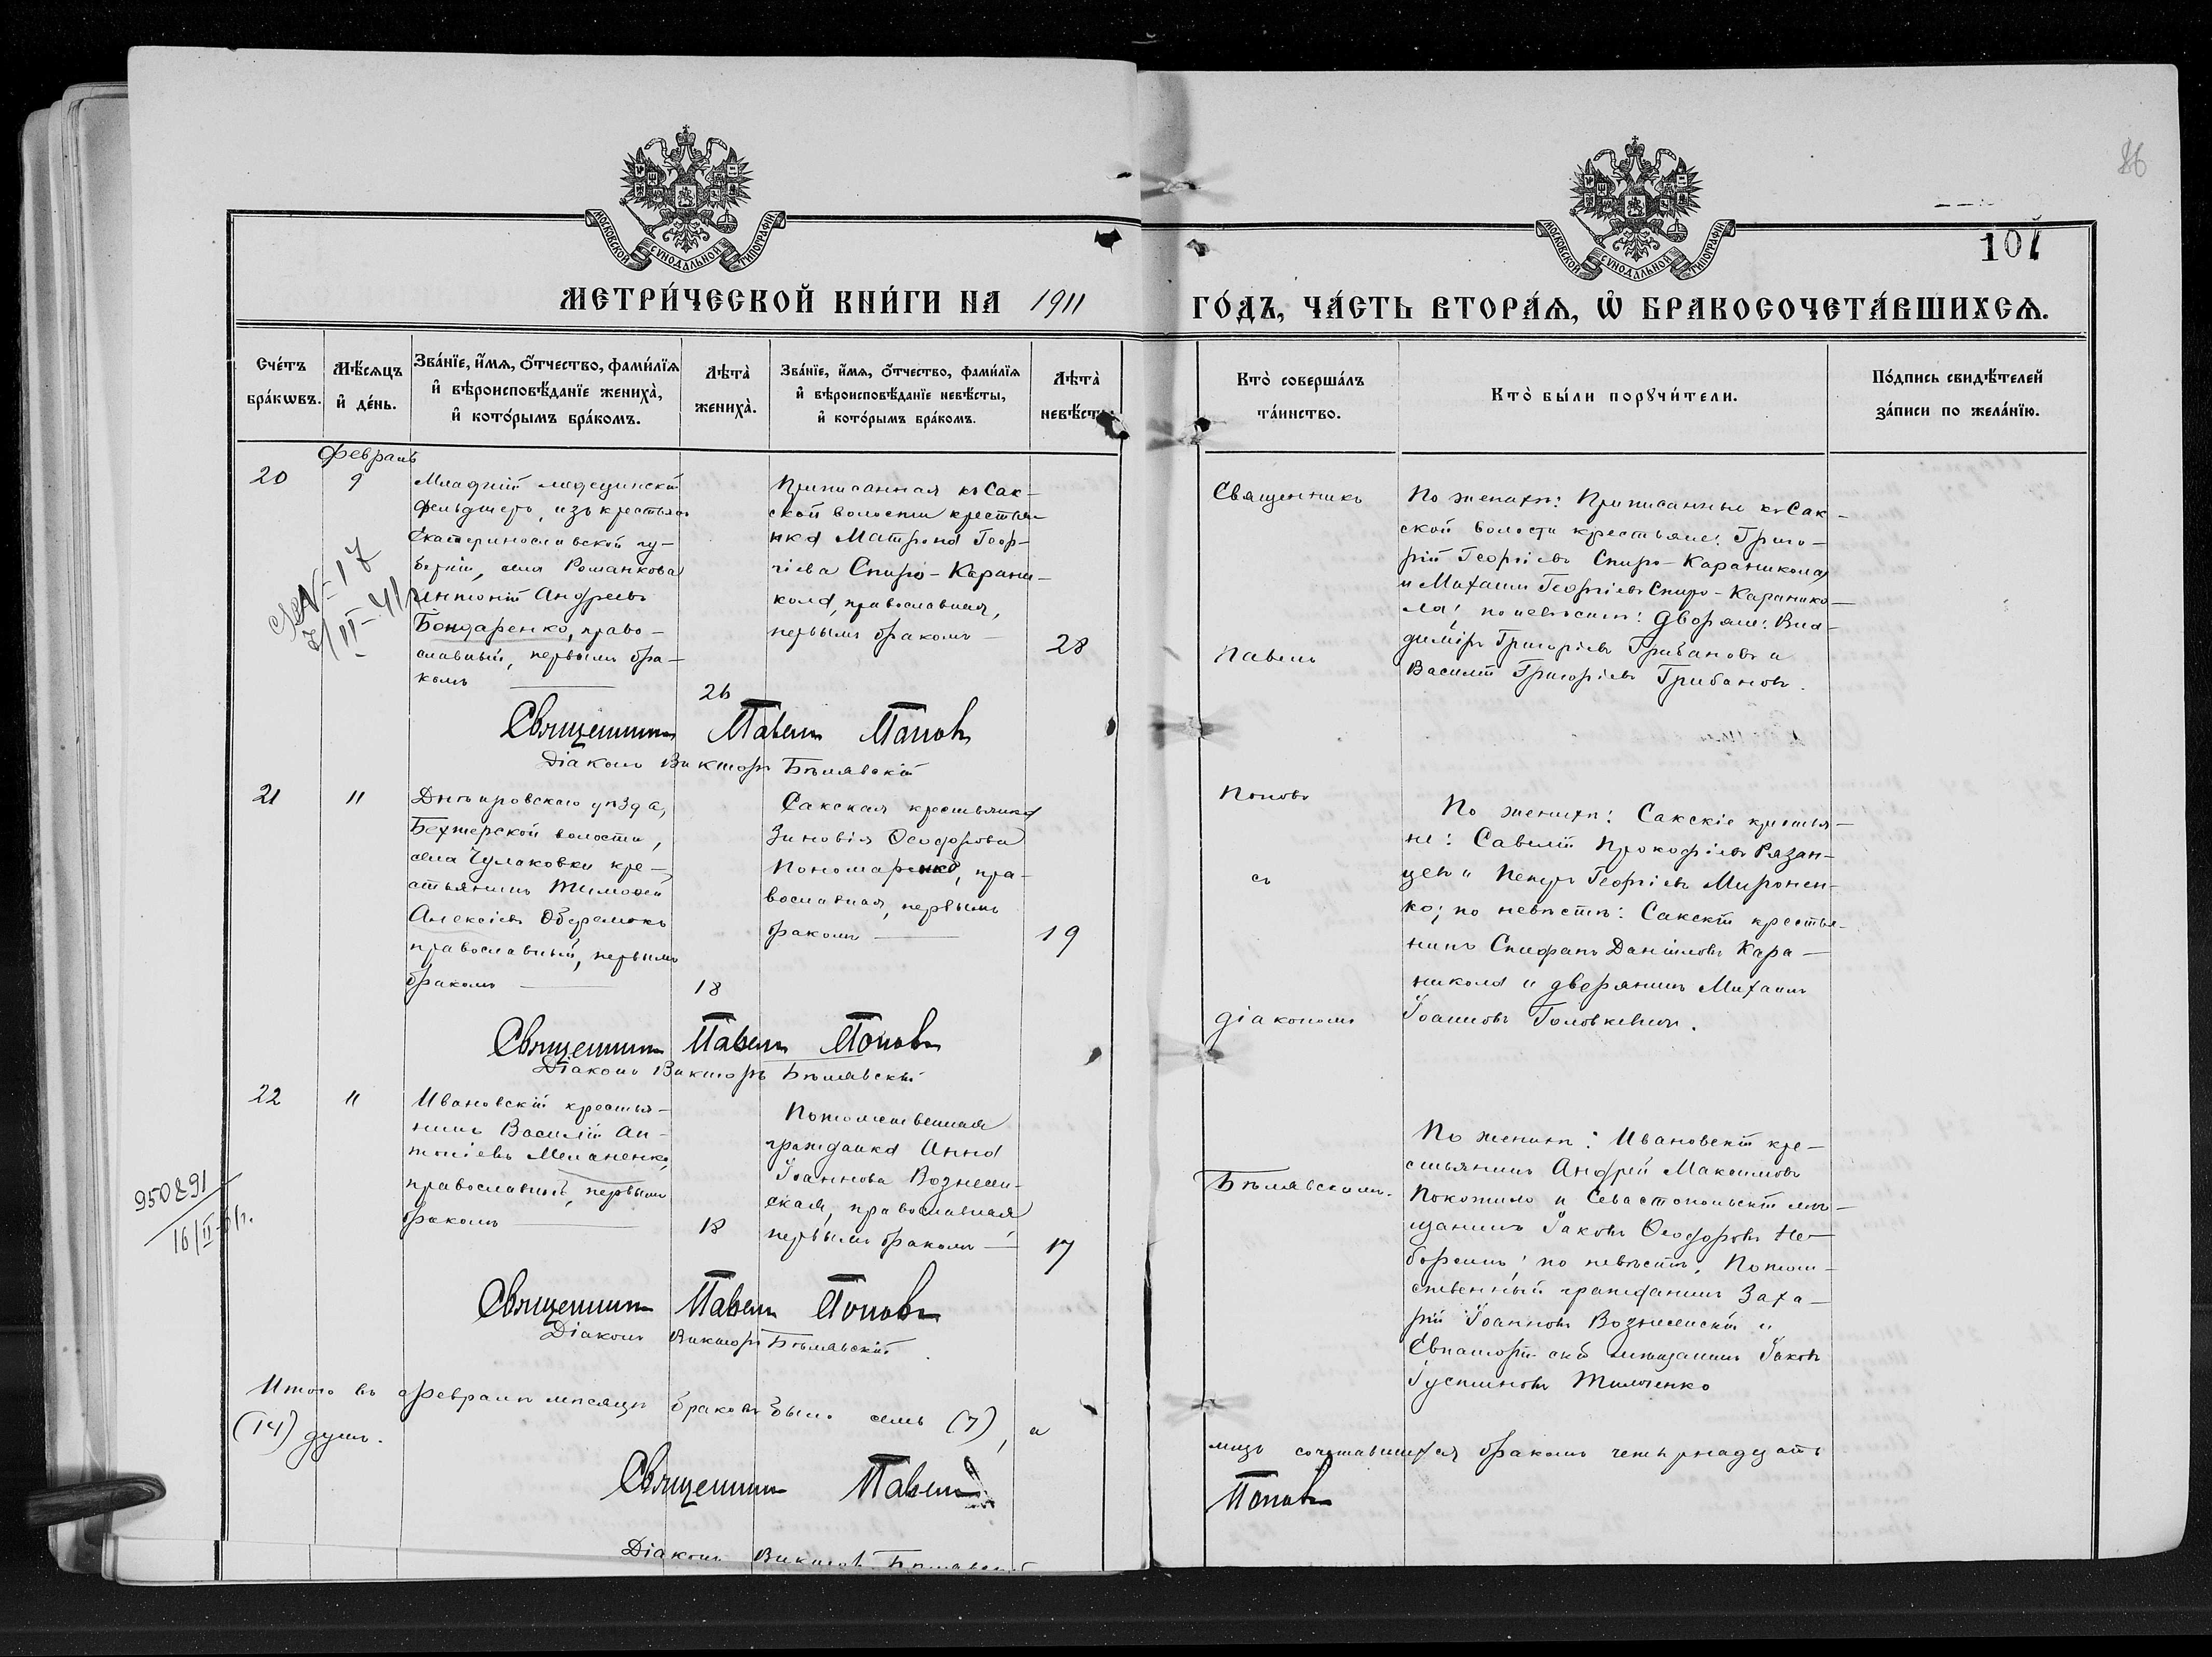 86
101
МОСКОВСКОЙ СѴНОДАЛЬНОЙ ТИПОГРАФІИ
МОСКОВСКОЙ СѴНОДАЛЬНОЙ ТИПОГРАФІИ
МЕТРИ́ЧЕСКОЙ КНИ́ГИ НА 1911 ГО́ДЪ, ЧА́СТЬ ВТОРА́Ѧ, Ѡ҆ БРАКОСОЧЕТА́ВШИХСѦ.
Сче́тъ бра́кѡвъ.
Мѣ́сѧцъ и҆ де́нь.
Зва́нїе, и҆́мѧ, ѻ҆́тчество, фами́лїѧ
и҆ вѣроисповѣ́данїе жениха̀,
и҆ кото́рымъ бра́комъ.
Лѣта̀ жениха̀.
Зва́нїе, и҆́мѧ, ѻ҆́тчество, фами́лїѧ
и҆ вѣроисповѣ́данїе невѣ́сты,
и҆ кото́рымъ бра́комъ.
Лѣта̀ невѣ́сты
Кто̀ соверша́лъ та́инство.
Кто̀ бы́ли порꙋчи́тели.
По́дпись свидѣ́телей за́писи по жела́нїю.
Февраль
20
9
Младшій медецинскій
фельдшеръ, изъ крестьянъ
Екатеринославской гу-
берніи, села Романкова
Антоній Андреевъ
Бондаренко, право-
славный, первымъ бра-
комъ
26
Приписанная къ Сак-
ской волости крестьян-
ка Матрона Геор-
гіева Спиро-Карани-
кола, православная,
первымъ бракомъ
28
Священникъ
Павелъ
Поповъ
съ
діакономъ
Бѣлявскимъ.
По женихѣ: Приписанные къ Сак-
ской волости крестьяне: Григо-
рій Георгіевъ Спиро-Караникола
и Михаилъ Георгіевъ Спиро-Каранико-
ла; по невѣстѣ: Дворяне: Вла-
диміръ Григорьевъ Грибановъ и
Василій Григорьевъ Грибановъ.
Священникъ Павелъ Поповъ
Діаконъ Викторъ Бѣлявскій
21
11
Днѣпровскаго уѣзда,
Бехтерской волости,
села Чулаковки кре-
стьянинъ Тимофей
Алексѣевъ Оберемокъ
православный, первымъ
бракомъ
18
Сакская крестьянка
Зиновія Ѳеодорова
Пономаренко, пра-
вославная, первымъ
бракомъ
19
По женихѣ: Сакскіе крестья-
не: Савелій Прокофіевъ Рязан-
цевъ и Петръ Георгіевъ Миронен-
ко; по невѣстѣ: Сакскій крестья-
нинъ Даніиловъ Кара-
никола и дворянинъ Михаилъ
Іоанновъ Головкевичъ.
Священникъ Павелъ Поповъ
Діаконъ Викторъ Бѣлявскій
22
11
Ивановскій крестья-
нинъ Василій Ан-
тоніевъ Меланенко,
православный, первымъ
бракомъ
18
Потомственная
гражданка Анна
Іоаннова Вознесен-
ская, православная
первымъ бракомъ
17
По женихѣ: Ивановскій кре-
стьянинъ Андрей Максимовъ
и Севастопольскій мѣ-
щанинъ Іаковъ Ѳеодоровъ
по невѣстѣ: Потом-
ственный гражданинъ Заха-
рій Іоанновъ Вознесенскій и
Евпаторійскій мѣщанинъ Іаковъ
Іустиновъ Тимченко
Священникъ Павелъ Поповъ
Діаконъ Викторъ Бѣлявскій
950291
Итого въ февралѣ мѣсяцѣ браковъ было семь (7), а лицъ сочетавшихся бракомъ четырнадцать
(14) душъ.
Священникъ Павелъ Поповъ
Діаконъ Викторъ Бѣлявскій